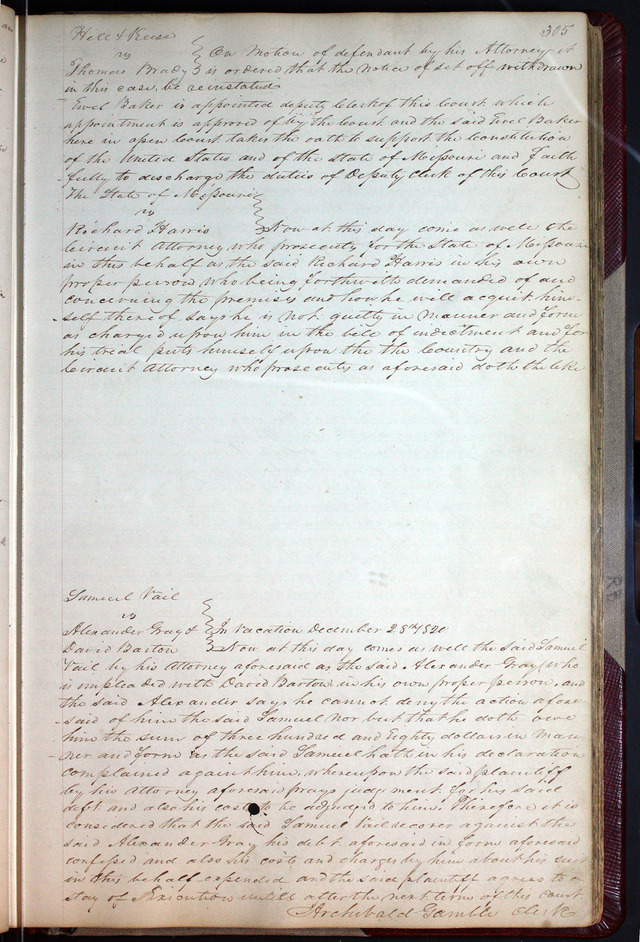 305
Hill & Keese
vs
Thomas Brady } On Motion of defendant by his Attorney it
is ordered that the Notice of set off withdrawn
in this case, be reinstated
Ewel Baker is appointed deputy Clerk of this Court which
appointment is approved of by the Court and the said Ewel Baker
here in open Court takes the oath to support the Constitution
of the United States and of the State of Missouri and faith
fully to discharge the duties of Deputy Clerk of this Court
The State of Missouri
vs
Richard Harris } Now at this day come as well the
Circuit Attorney who prosecutes for the State of Missouri
in this behalf as the said Richard Harris in his own
proper person who being forthwith demanded of and
concerning the premises and how he will acquit him-
self thereof says he is not guilty in manner and form
as charged upon him in the bill of indictment and for
his trial puts himself upon the the Country and the
Circuit Attorney who prosecutes as aforesaid doth the like
Samuel Vail
vs
Alexander Gray & } In Vacation December 25th 1820
David Barton } Now at this day comes as well the said Samuel
Vail by his Attorney aforesaid as the said Alexander Gray (who
is impleaded with David Barton) in his own proper person, and
the said Alexander says he cannot deny the action afore
said of him the said Samuel Nor but that he doth owe
him the sum of three hundred and Eighty dollars in man
ner and form as the said Samuel hath in his declaration
complained against him, whereupon the said plaintiff
by his Attorney aforesaid prays judgment for his said
debt and also his costs to be adjudged to him. Therefore it is
considered that the said Samuel Vail recover against the
said Alexander Gray his debt aforesaid in form aforesaid
confessed and also his costs and charges by him about his suit
in this behalf expended and the said plaintiff agrees to a
stay of Execution untill after the next term of this Court
Archibald Gamble Clerk